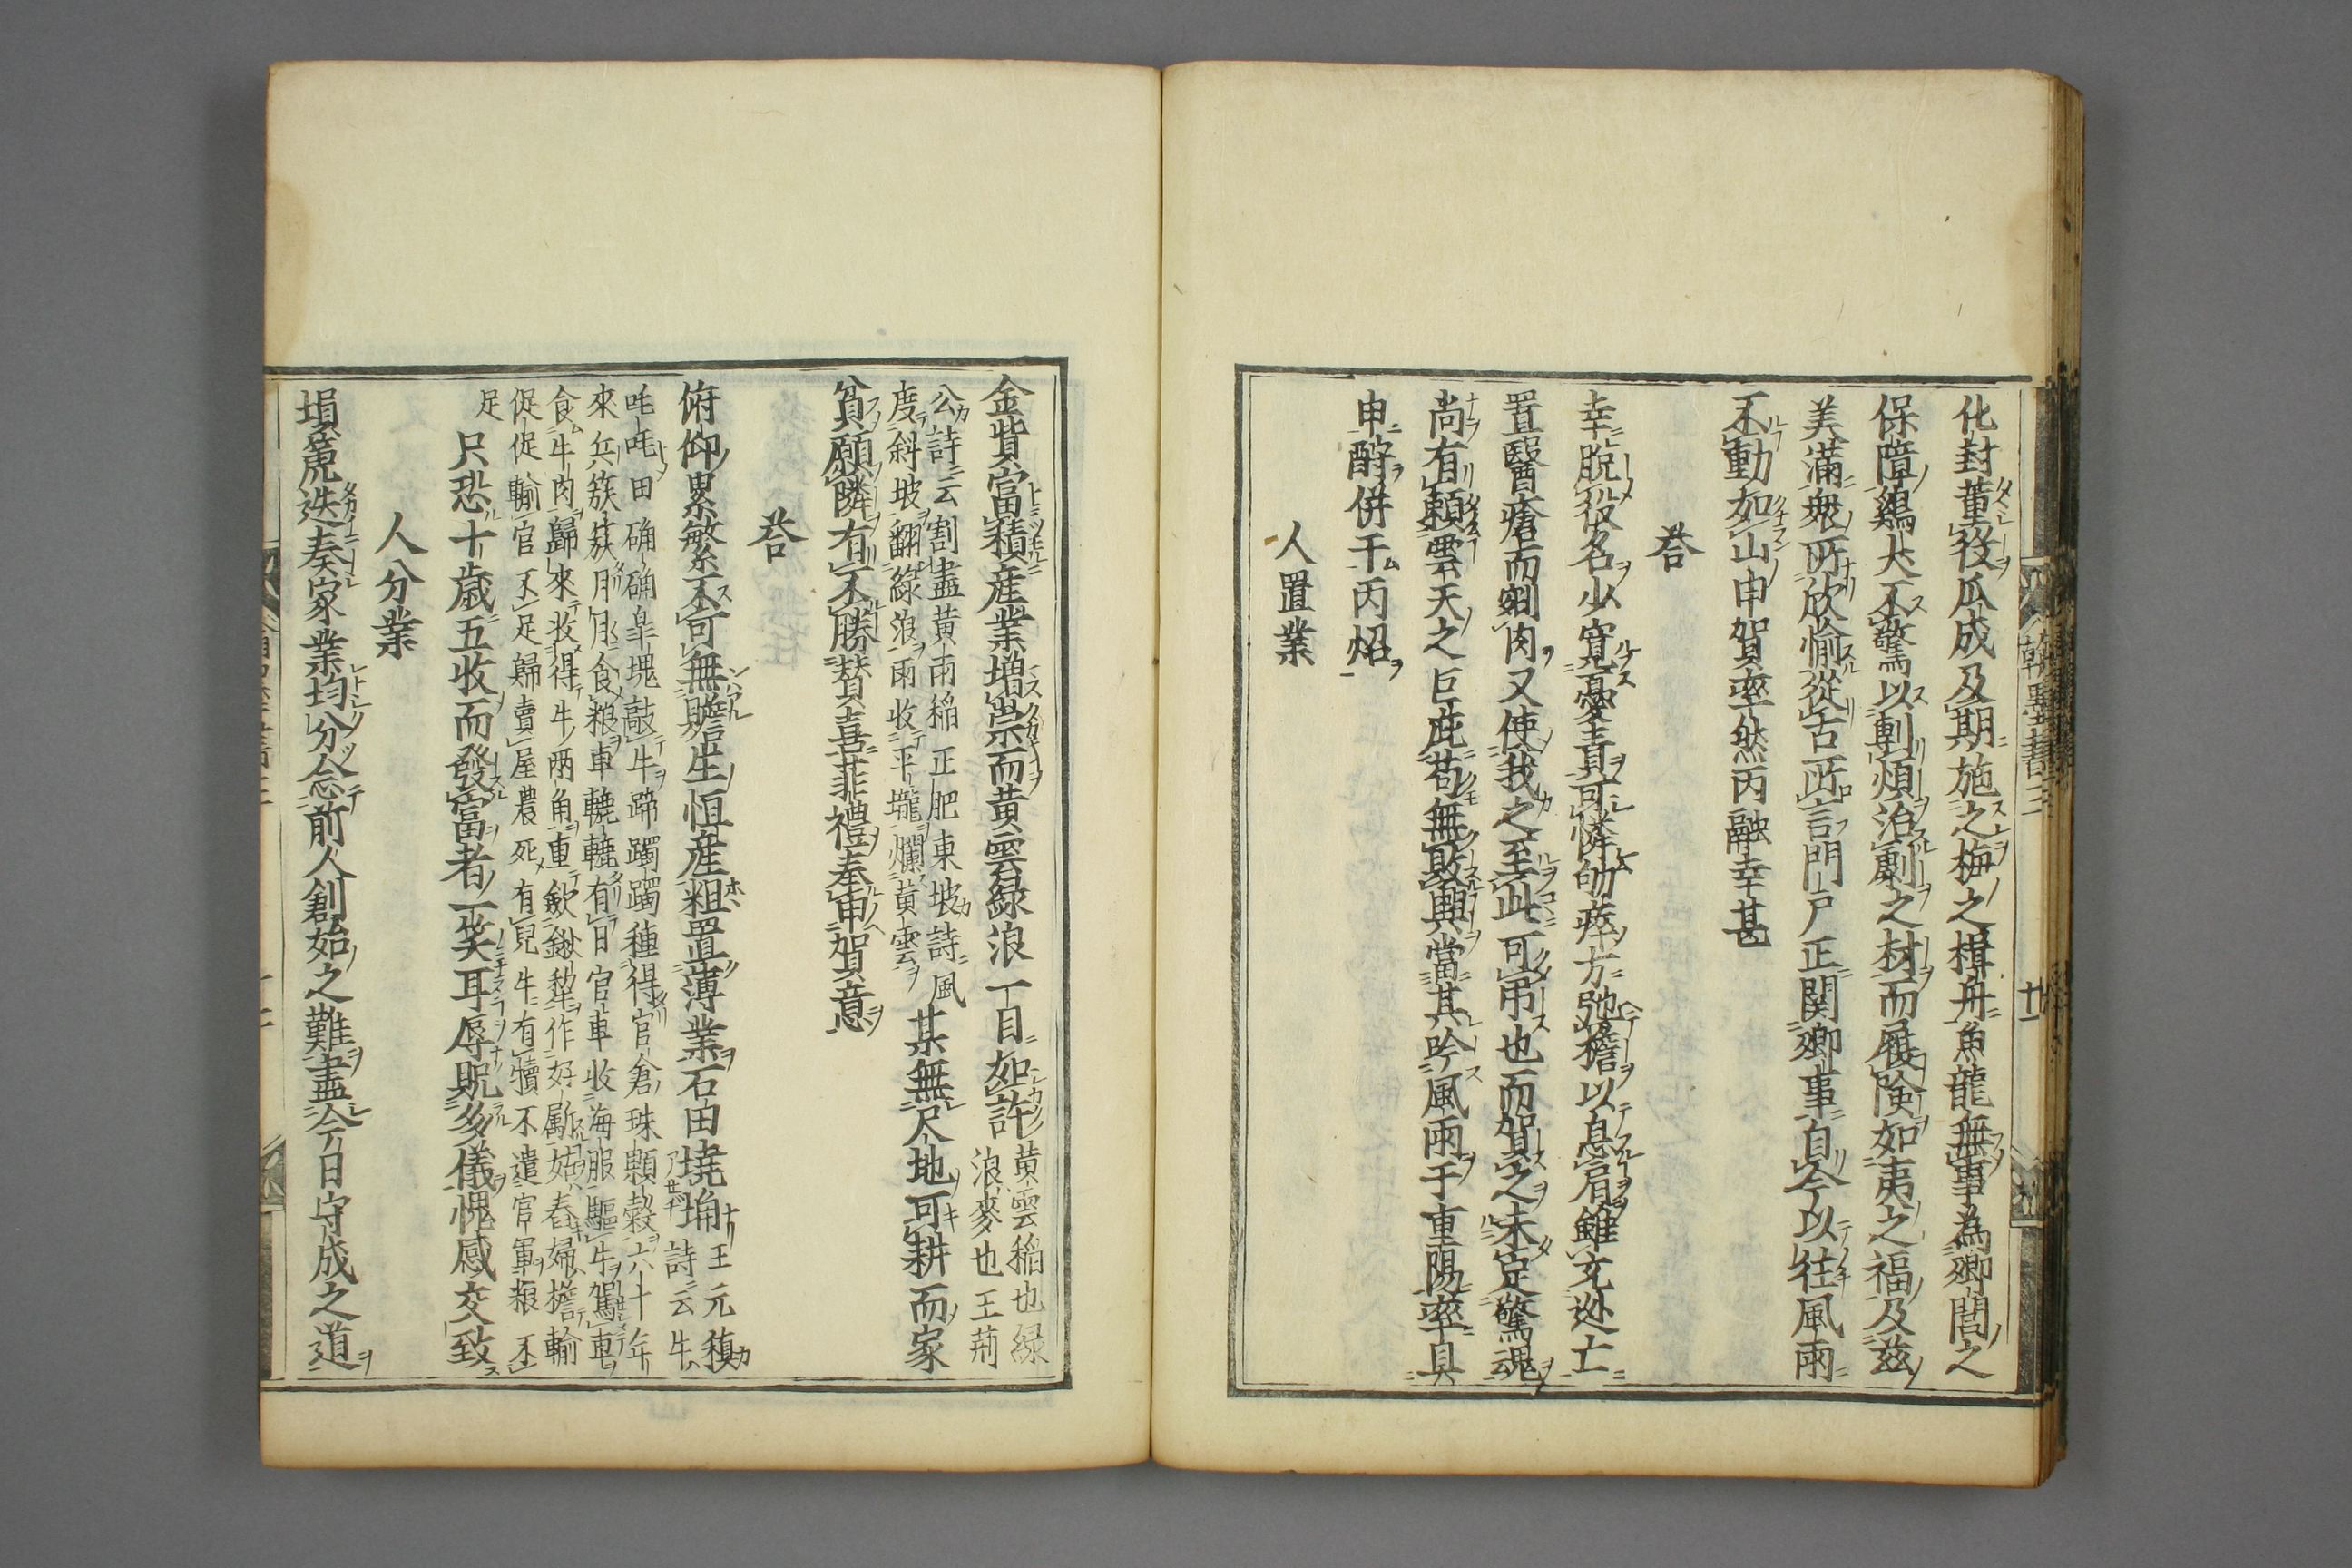 化封董役瓜成及期施之梅之楫舟魚龍無事為卿閭之
保障鷄犬不驚以剸煩治劇之材而履険如夷之福及茲
美滿衆所欣愉從古所言門戸正関卿事自今以往風雨
不動如山申賀率然丙融幸甚
答
幸脫役名少寬憂責可憐劬瘁方弛檐以息肩雖充逊亡
置毉瘡而剜肉又使我之至此可吊也而賀之未定驚魂
尚有頼雲天之巨庇苟無敗興當其吟風雨于重陽率具
申酧併干丙炤
人置業
金貲富積産業増崇而黄雲緑浪一目如許
黄雲稲也緑
浪麥也王荊
公詩云割盡黄雨稲正肥東坡詩風
度斜坡翻緑浪雨收平壠爛黄雲
某無尺地可耕而家
貧願隣有不勝賛喜菲禮奉申賀意
答
俯仰累繁不可無贍生恒産粗置薄業石田墝埆
王元稹
詩云牛
吒吒田确确皐塊敲牛蹄躅躅種得官倉珠顆穀六十年
來兵簇簇月月食粮車轆轆有日官車收海服驅牛駕車
食牛肉歸來收得牛両角重歛鍬犂作好斸姑舂婦檐輸
促促輸官不足歸賣屋農死有兒牛有犢不遣官軍粮不
足
只恐十歳五收而發富者一笑耳辱貺多儀愧感交致
人分業
塤篪迭奏家業均分念前人創始之難盡今日守成之道
翰墨書三
廿一